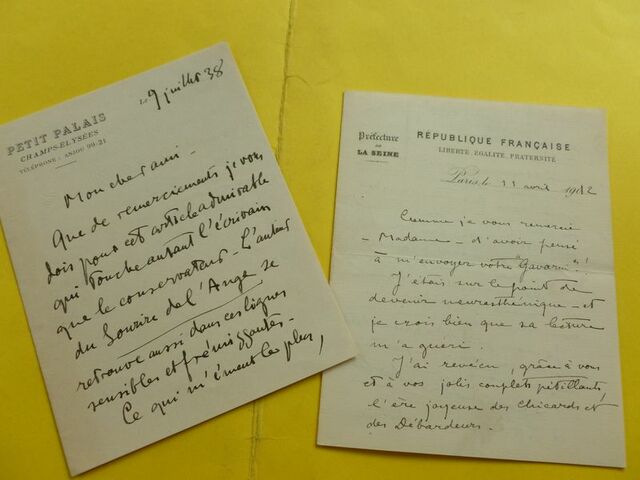 PETIT PALAIS
CHAMPS-ELYSÉES
TÉLÉPHONE: ANJOU 99-21
Le 9 juillet 38
Mon cher ami -
Que de remerciements je vous
dois pour cet article admirable
qui touche autant l'écrivain
que le conservateur - L'auteur
du Sourire de l'Ange se
retrouve aussi dans ces lignes
sensibles et frémissantes -
Ce qui m'émeut le plus,
Préfecture
DE
LA SEINE
RÉPUBLIQUE FRANÇAISE
LIBERTÉ ÉGALITÉ FRATERNITÉ
Paris, le 11 avril 1912
Comme je vous remercie
- Madame - d'avoir pensé
à m'envoyer votre "Gavarni"!
J'étais sur le point de
devenir neurasthénique - et
je crois bien que sa lecture
m'a guéri.
J'ai revécu, grâce à vous
et à vos jolis couplets pétillants,
l'ère joyeuse des Chicards et
des Débardeurs.